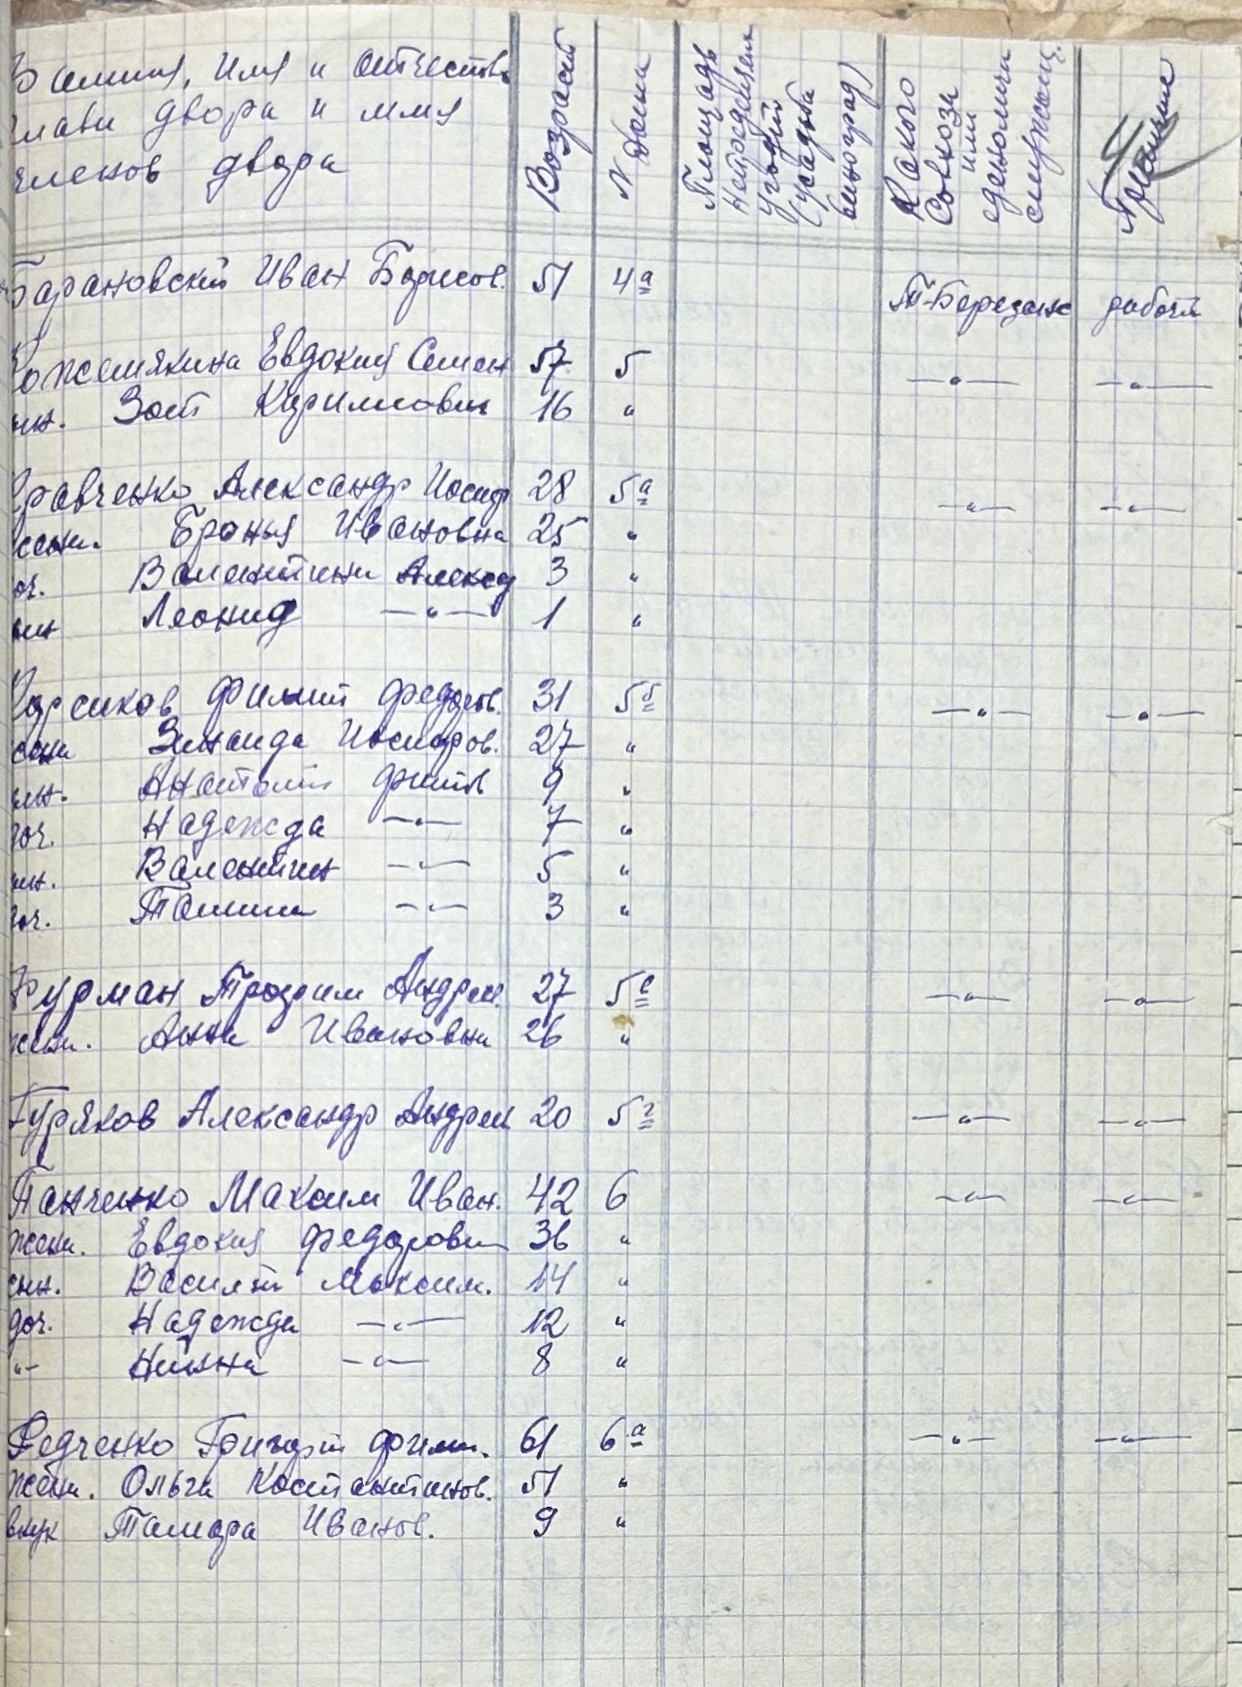 Фамилия, Имя и отчество
главы двора и имя
членов двора
Возраст
N дома
Площадь
непосредствен
угодий
(усадьба
виноград)
Какого
Совхоза
или
единолични
служащ.
4
Барановский Иван Борисов. 51 4а Т-Березанс рабочий
Кожемякина Евдокия Семен 57 5 —„— —„—
сын. Зот Кириллович 16 „
Кравченко Александр Иосиф 28 5а —„— —„—
жена. Броныя Ивановна 25 „
доч. Валентина Александ 3 „
сын Леонид —„— 1 „
Карсиков Филип Федоров. 31 5б —„— —„—
жена Зинаида Иосифов. 27 „
сын. Анатолий Филип 9 „
доч. Надежда —„— 7 „
сын. Валентин —„— 5 „
доч. Тамара —„— 3 „
Фурман Трофим Андрей 27 5в —„— —„—
жена. Анна Ивановна 26 „
Гуряков Александр Андрей 20 5г —„— —„—
Панченко Максим Иван. 42 6 —„— —„—
жена. Евдокия Федоровна 36 „
сын. Василий Максим. 14 „
доч. Надежда —„— 12 „
„- —„— 8 „
Редченко Григорий Филип. 61 6а —„— —„—
жена. Ольга Костантинов. 51 „
внук Тамара Иванов. 9 „